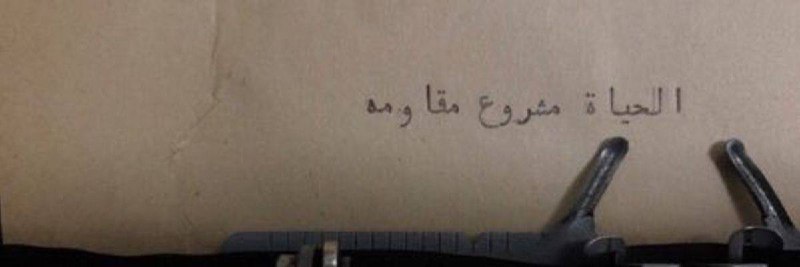 الحياة مشروع مقاومه